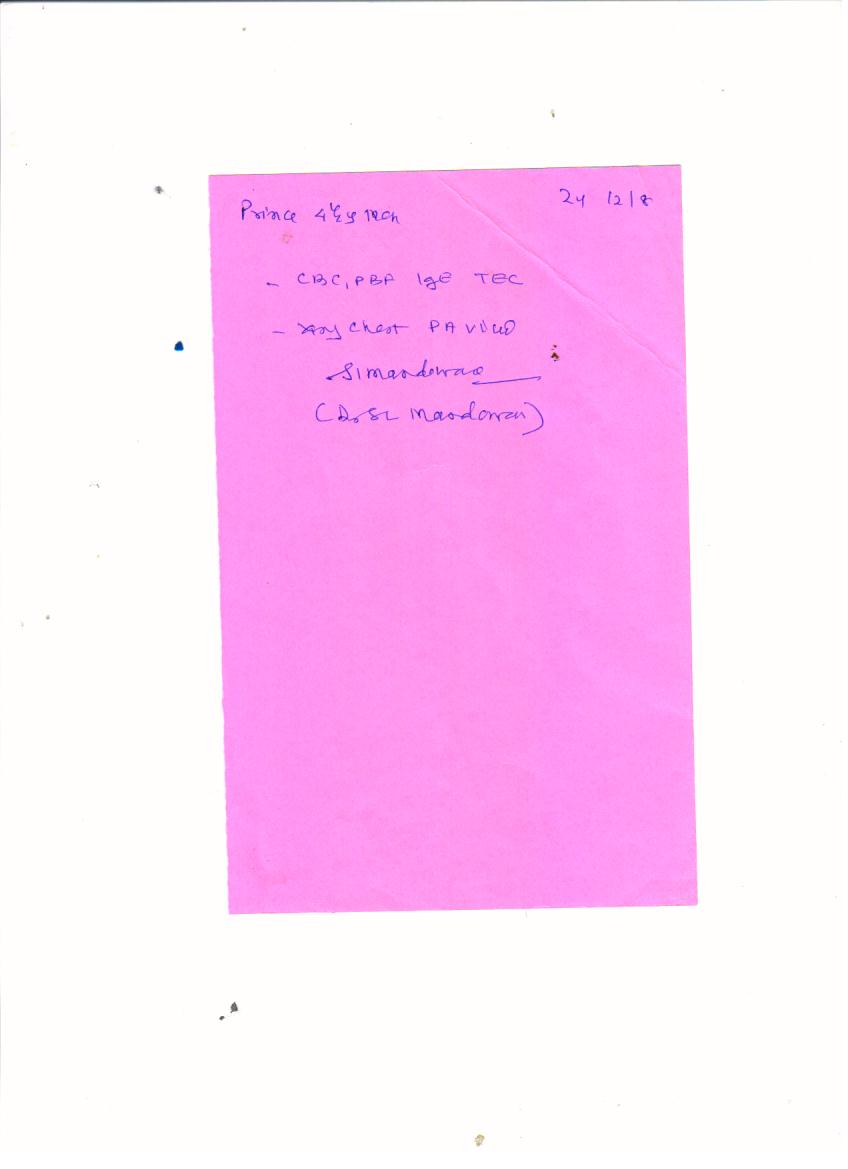 Prince 4½ y Mch 24 12/8
- CBC, PBF IgE TEC
- Xray Chest PA view
Slmandowara
(Dr SL Mandowara)